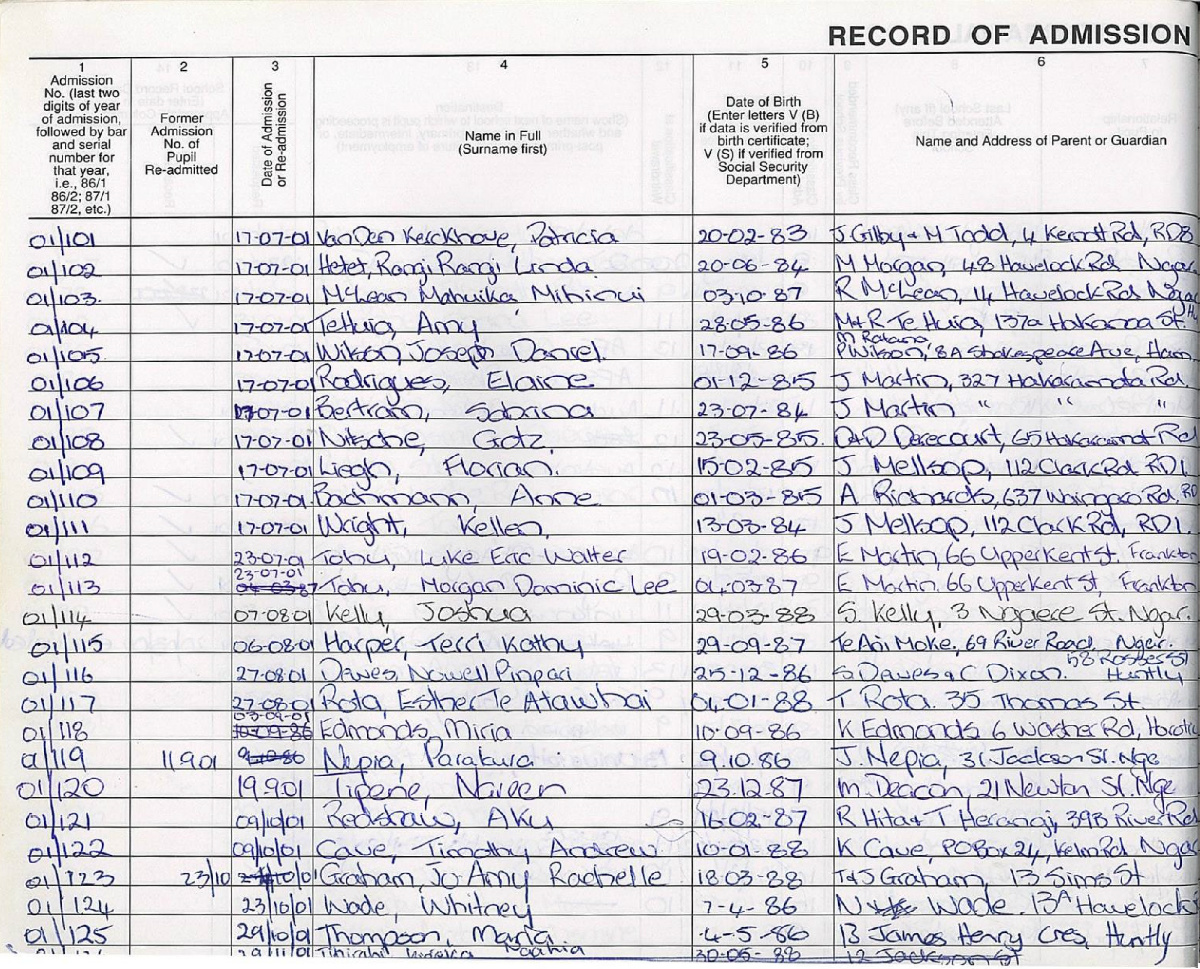 RECORD OF ADMISSION
1 2 3 4 5 6
Admission No. (last two digits of year of admission, followed by bar and serial number for that year, i.e., 86/1 86/2; 87/1 87/2, etc.)
Former Admission No. of Pupil Re-admitted
Date of Admission or Re-admission
Name in Full (Surname first)
Date of Birth (Enter letters V (B) if data is verified from birth certificate; V (S) if verified from Social Security Department)
Name and Address of Parent or Guardian
01/101 17-07-01 Van Den Kerckhove, Patricia 20-02-83 J Gilby & M Todd, 4 Rd, RD8
01/102 17-07-01 Hetet, Rangi Rangi Linda 20-06-84 M Morgan, 48 Havelock Rd Ngar
01/103 17-07-01 McLean Mahuika Mihinui 03-10-87 R McLean, 14 Havelock Rd
01/104 17-07-01 Te Huia, Amy 28-05-86 M & R Te Huia, 137a Hakanoa St.
M Ratana
01/105 17-07-01 Wilson Joseph Daniel. 17-09-86 P Wilson, 8A Shakespeare Ave, Ham.
01/106 17-07-01 Rodrigues, Elaine 01-12-85 J Martin, 327 Hakarimata Rd.
01/107 17-07-01 Bertram, Sabrina 23-07-84 J Martin " " "
01/108 17-07-01 Nitsche, Gotz 23-05-85. D & D Derecourt, 65 Rd
01/109 17-07-01 Liegh, Florian. 15-02-85 J Mellsop, 112 Clark Rd RD1.
01/110 17-07-01 Bachmann, Anne 01-03-85 A Richards, 637 Rd, RD
01/111 17-07-01 Wright, Kellen 13-03-84 J Mellsop, 112 Clark Rd, RD1.
01/112 23-07-01 Tahu, Luke Eric Walter 19-02-86 E Martin, 66 Upper Kent St. Frankton
23-07-01
01/113 Tahu, Morgan Dominic Lee 04-03-87 E Martin. 66 Upper Kent St, Frankton
01/114 07-08-01 Kelly, Joshua 29-03-88 S. Kelly, 3 Ngaere St. Ngar.
01/115 06-08-01 Harper, Terri Kathy 29-09-87 Te Ani Moke, 69 River Road, Ngar.
58 St
01/116 27-08-01 Dawes Nowell Pinpari 25-12-86 S Dawes & C Dixon. Huntly
01/117 27-08-01 Rota, Esther Te Atawhai 04-01-88 T Rota. 35 Thomas St
03-09-01
01/118 Edmonds, Miria 10-09-86 K Edmonds, 6 Rd,
01/119 11901 Nepia, Paratawa 9.10.86 J. Nepia, 31 Jackson St. Nga
01/120 19.9.01 Tipene, Naveen 23.12.87 M. Deacon, 21 Newton St. Nga
01/121 09/10/01 Redshaw, Aku 16-02-87 R Hita & T Herangi, 39B River Rd
01/122 09/10/01 Cave, Timothy Andrew 10-01-88 K Cave, PO Box 24, Kelm Rd, Ngar
01/123 23/10 Graham, Jo-Amy Rachelle 18-03-88 T & J Graham, 13 Sims St
01/124 23/10/01 Wade, Whitney 7-4-86 N Wade. 13A Havelock
01/125 29/10/01 Thompson, Maria 4-5-86 13 James Henry Cres, Huntly
30-05-88 12 Jackson St